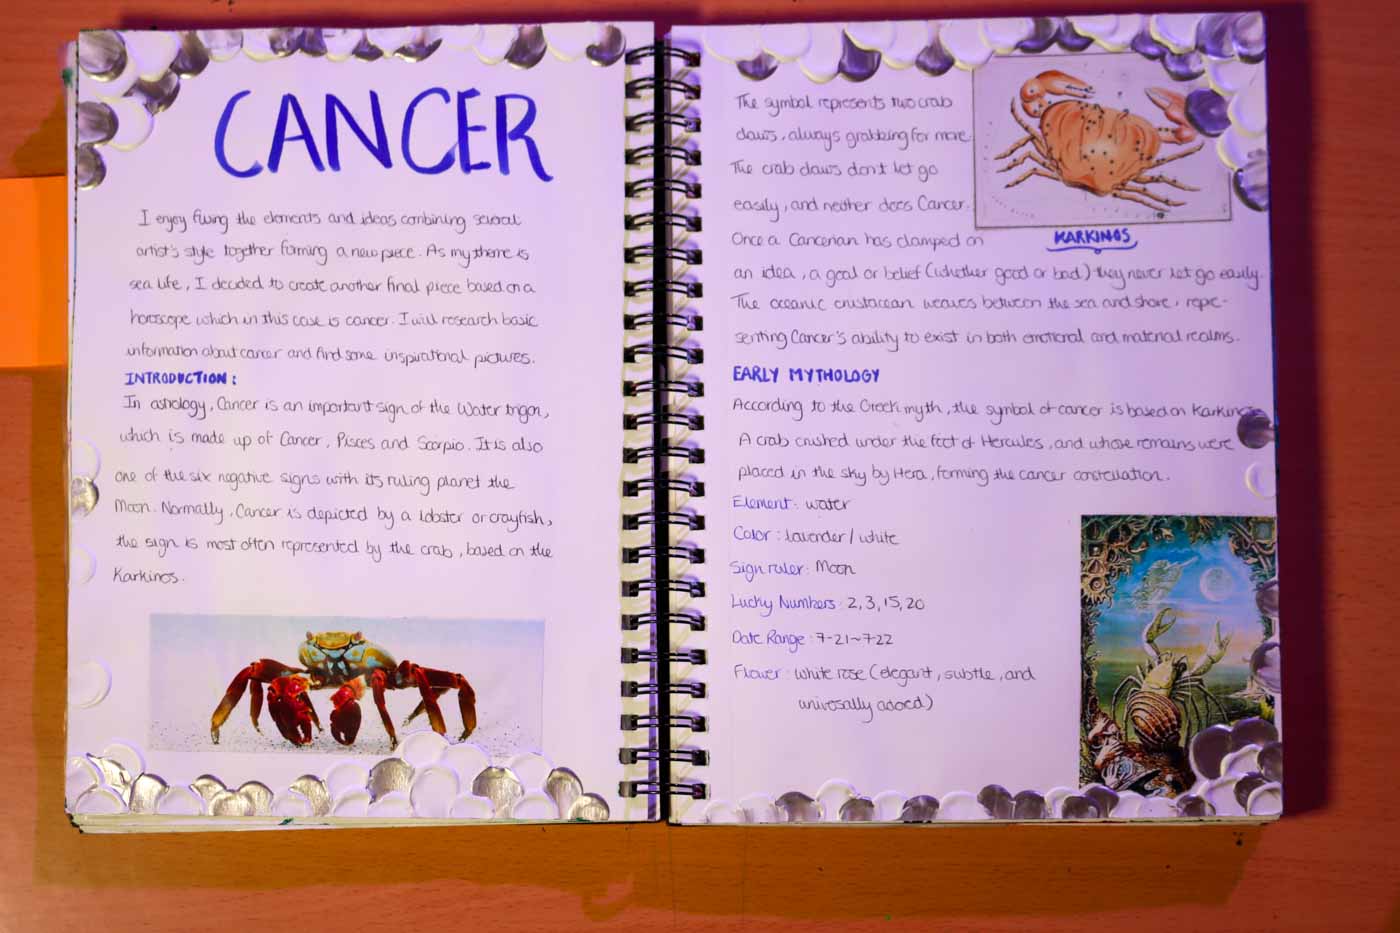 CANCER
I enjoy fusing the elements and ideas combining several
artist's style together forming a new piece. As my theme is
sea life, I decided to create another final piece based on a
horoscope which in this case is cancer. I will research basic
information about cancer and find some inspirational pictures.
INTRODUCTION:
In astrology, Cancer is an important sign of the Water trigon,
which is made up of Cancer, Pisces and Scorpio. It is also
one of the six negative signs with its ruling planet the
Moon. Normally, Cancer is depicted by a lobster or crayfish,
the sign is most often represented by the crab, based on the
Karkinos.
The symbol represents two crab
claws, always grabbing for more.
The crab claws don't let go
easily, and neither does Cancer.
Once a Cancerian has clamped on
an idea, a goal or belief (whether good or bad) they never let go easily.
The oceanic crustacean weaves between the sea and shore, repre-
senting Cancer's ability to exist in both emotional and material realms.
KARKINOS
EARLY MYTHOLOGY
According to the Greek myth, the symbol of cancer is based on Karkinos
A crab crushed under the foot of Hercules, and whose remains were
placed in the sky by Hera, forming the cancer constellation.
Element: water
Color: lavender / white
Sign ruler: Moon
Lucky Numbers: 2, 3, 15, 20
Date Range: 7-21~7-22
Flower: white rose (elegant, subtle, and
universally adored)